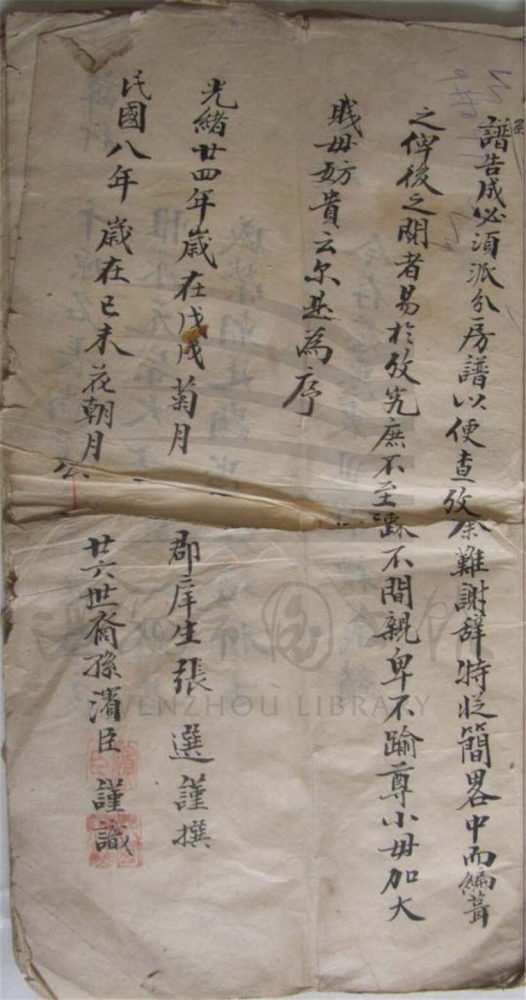 譜告成必須派分房譜以便查攷余難謝辞特從簡畧中而編葺
之俾後之閱者易於攷究庶不至踈不間親卑不踰尊小毋加大
賤毋妨貴云尔是為序
光緒廿四年歲在戊戌菊月 郡庠生張選謹撰
民國八年歲在己未花朝月 廿六世裔孫濱臣謹識
WENZHOU LIBRARY